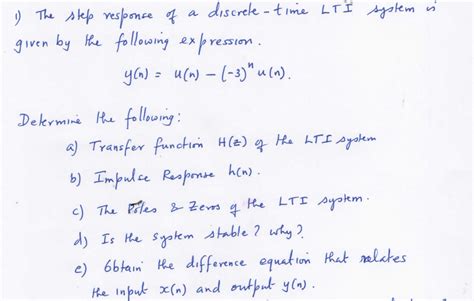 1) The step response of a discrete-time LTI system is
given by the following expression.
y(n) = u(n) - (-3)ⁿ u(n).
Determine the following:
a) Transfer function H(z) of the LTI system
b) Impulse Response h(n).
c) The Poles & Zeros of the LTI system.
d) Is the system stable? why?
e) Obtain the difference equation that relates
the input x(n) and output y(n).